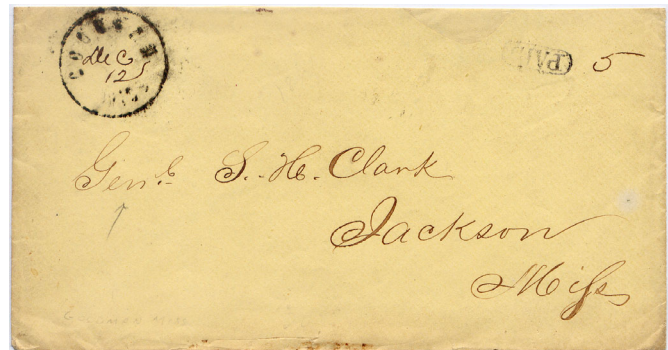 Dec
12
PAID 5
Genl. S. H. Clark
Jackson
Miſs